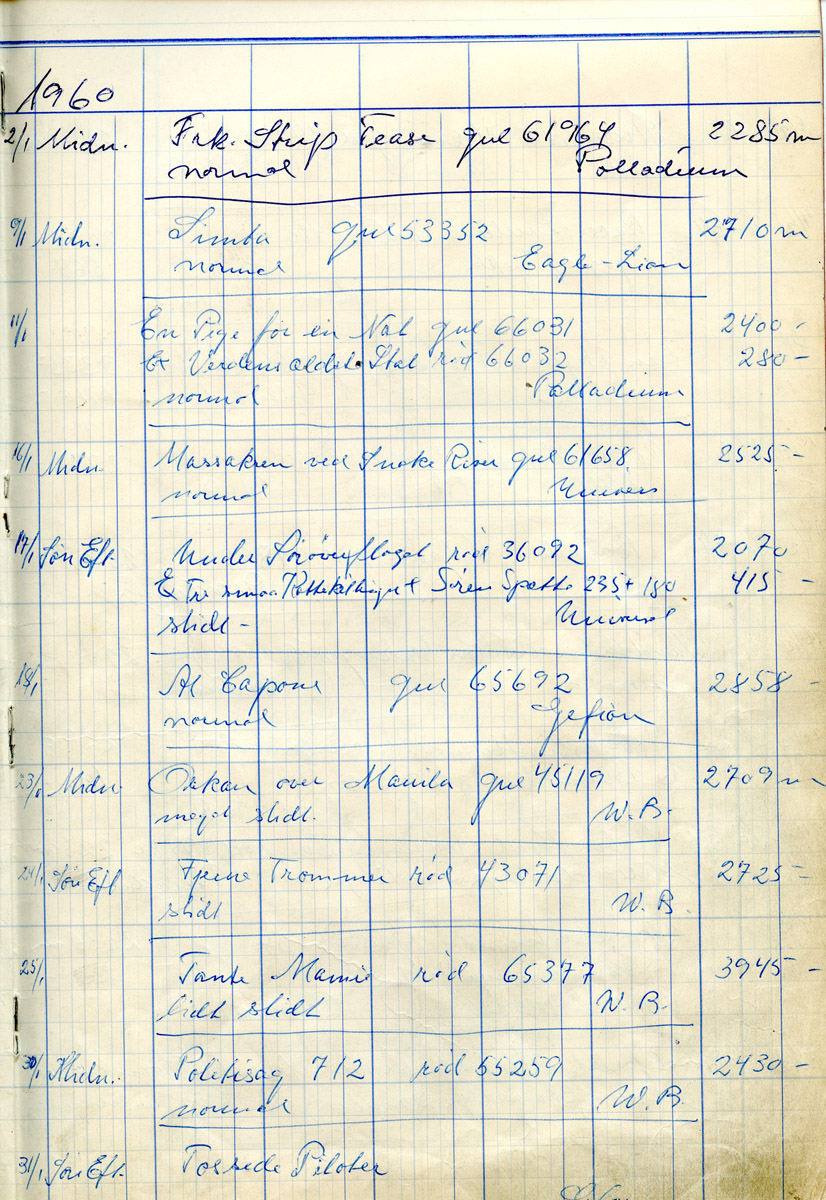 1960
2/1 Midn. Frk. Strip Tease gul 61964 2285 m
normal Palladium
9/1 Midn. Simba gul 53352 2710 m
normal Eagle-Lion
11/1 En Pige for en Nat gul 66031 2400 -
& Verdens ældste Stat rød 66032 280 -
normal Palladium
16/1 Midn. Massakren ved Snake River gul 61658 2525 -
normal Univers
17/1 Søn Eft. Under Sørøverflaget rød 36092 2070
& Tre smaa + Søren Spætte 235 + 180 415 -
slidt - Universal
18/1 Al Capone gul 65692 2858 -
normal Gefion
23/1 Midn. Orkan over Manila gul 45119 2709 m
meget slidt. W.B.
24/1 Søn Eft Fjerne Trommer rød 43071 2725 -
slidt W.B.
25/1 Tante Mamie rød 65377 3945 -
lidt slidt W.B.
30/1 Midn. Politisag 712 rød 55259 2430 -
normal W.B.
31/1 Søn Eft. Tossede Piloter